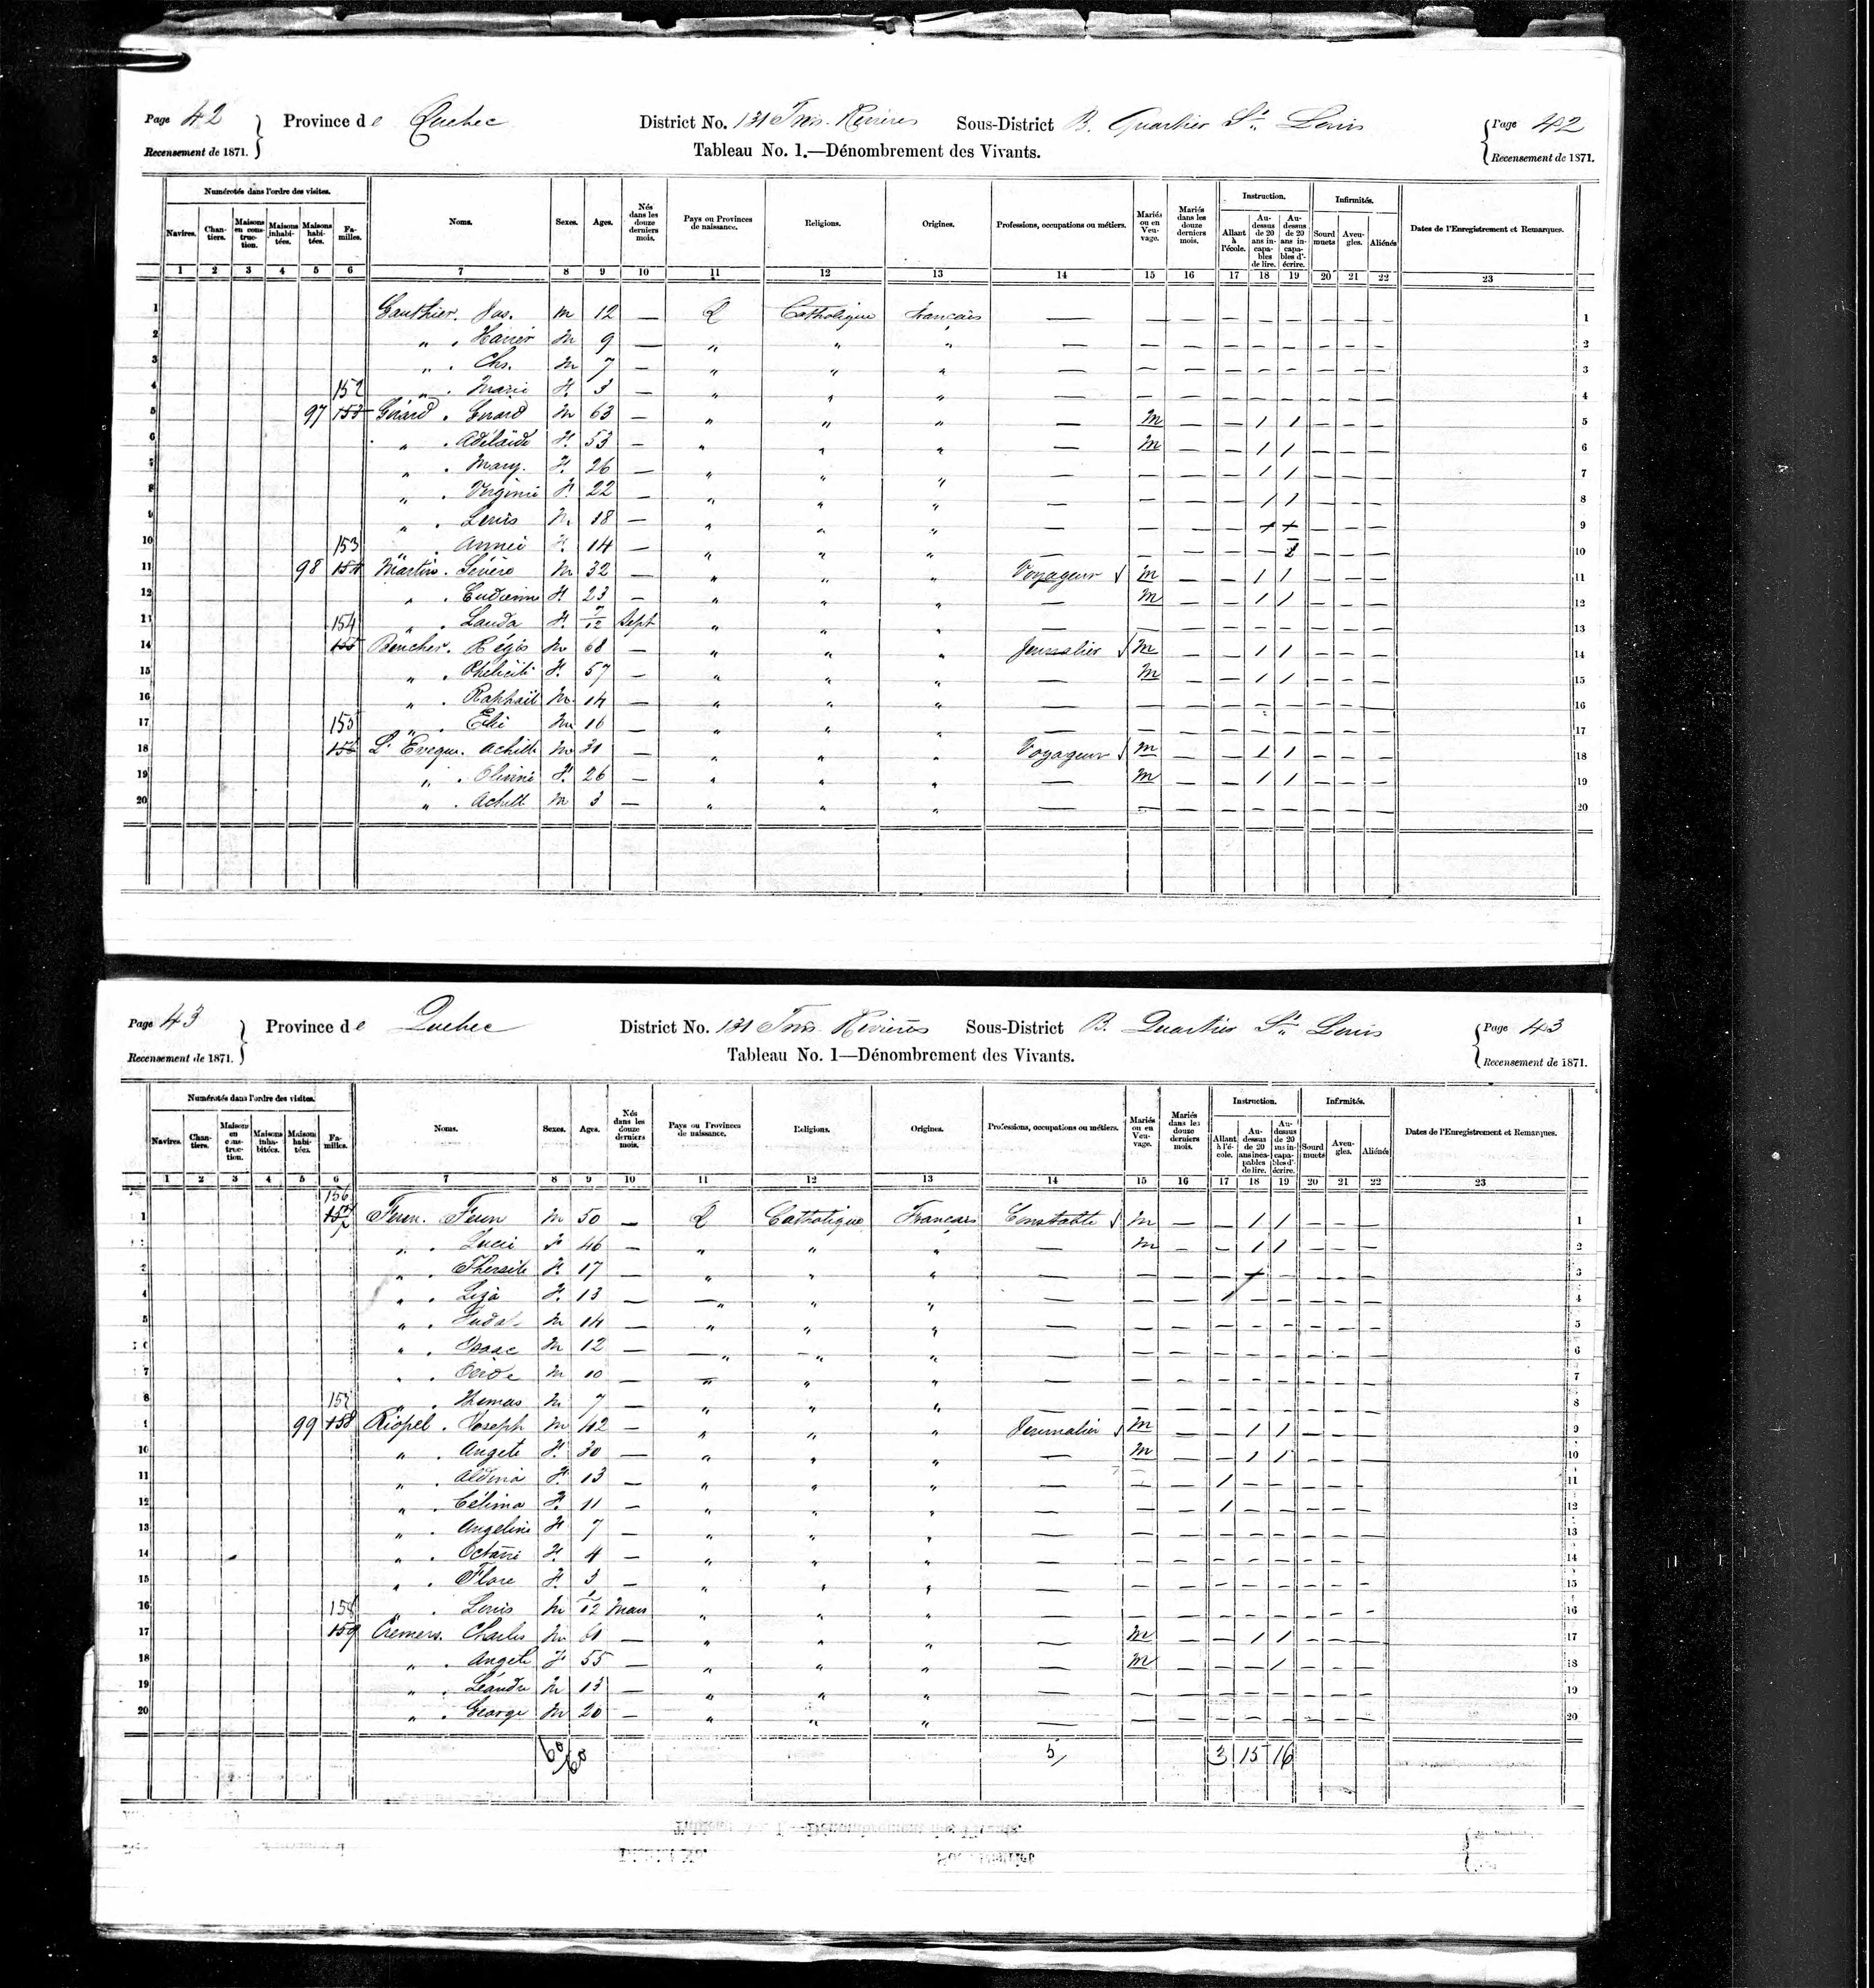 Page 42 Province de Quebec District No. 131 Trois-Rivieres Sous-District B. Quartier St. Louis Page 42
Recensement de 1871. Tableau No. 1.—Dénombrement des Vivants. Recensement de 1871.
Numérotés dans l'ordre des visites. Instruction. Infirmités.
Navires. Chantiers. Maisons en construction. Maisons inhabitées. Maisons habitées. Familles. Noms. Sexes. Ages. Nés dans les douze derniers mois. Pays ou Provinces de naissance. Religions. Origines. Professions, occupations ou métiers. Mariés ou en Veuvage. Mariés dans les douze derniers mois. Allant à l'école. Au-dessus de 20 ans incapables de lire. Au-dessus de 20 ans incapables d'écrire. Sourd muets Aveugles. Aliénés Dates de l'Enregistrement et Remarques.
1 2 3 4 5 6 7 8 9 10 11 12 13 14 15 16 17 18 19 20 21 22 23
1 Gauthier. Jos. M 12 — Q Catholique Francais — — — — — — — — — 1
2 " . M 9 — " " " — — — — — — — — — 2
3 " . Chs. M 7 — " " " — — — — — — — — — 3
4 152 " . Marie F. 3 — " " " — — — — — — — — — 4
5 97 153 Girard . M 63 — " " " — M — — 1 1 — — — 5
6 " . Adélaide F. 53 — " " " — M — — 1 1 — — — 6
7 " . Mary. F. 26 — " " " — — — — 1 1 — — — 7
8 " . Virginie F. 22 — " " " — — — — 1 1 — — — 8
9 " . Louis M. 18 — " " " — — — — + + — — — 9
10 153 " . Annie F. 14 — " " " — — — — — — — — 10
11 98 154 Martin . Sévère M 32 — " " " Voyageur M — — 1 1 — — — 11
12 " . F. 23 — " " " — M — — 1 1 — — — 12
13 154 " . Landa F. 7/12 Sept " " " — — — — — — — — — 13
14 155 Boucher. Régis M 68 — " " " Journalier M — — 1 1 — — — 14
15 " . F. 57 — " " " — M — — 1 1 — — — 15
16 " . Raphaël M. 14 — " " " — — — — — — — — — 16
17 155 " . M 16 — " " " — — — — — — — — — 17
18 156 L'Eveque. Achille M 31 — " " " Voyageur M — — 1 1 — — — 18
19 " . F. 26 — " " " — M — — 1 1 — — — 19
20 " . Achill M 3 — " " " — — — — — — — — — 20
Page 43 Province de Quebec District No. 131 Trois Rivières Sous-District B. Quartier St. Louis Page 43
Recensement de 1871. Tableau No. 1—Dénombrement des Vivants. Recensement de 1871.
Numérotés dans l'ordre des visites. Instruction. Infirmités.
Navires. Chantiers. Maisons en construction. Maisons inhabitées. Maisons habitées. Familles. Noms. Sexes. Ages. Nés dans les douze derniers mois. Pays ou Provinces de naissance. Religions. Origines. Professions, occupations ou métiers. Mariés ou en Veuvage. Mariés dans les douze derniers mois. Allant à l'école. Au-dessus de 20 ans incapables de lire. Au-dessus de 20 ans incapables d'écrire. Sourd muets Aveugles. Aliénés Dates de l'Enregistrement et Remarques.
1 2 3 4 5 6 7 8 9 10 11 12 13 14 15 16 17 18 19 20 21 22 23
156
1 157 M 50 — Q Catholique Francais Constable M — — 1 1 — — — 1
" . Lucie F 46 — " " " — M — — 1 1 — — — 2
" . F. 17 — " " " — — — — + — — — — 3
4 " . Liza F. 13 — " " " — — — 1 — — — — — 4
5 " . M 14 — " " " — — — — — — — — — 5
6 " . Isaac M 12 — " " " — — — — — — — — — 6
7 " . M 10 — " " " — — — — — — — — — 7
8 157 " . Thomas M 7 — " " " — — — — — — — — — 8
99 158 Riopel . Joseph M 42 — " " " Journalier M — — 1 1 — — — 9
10 " . Angele F. 30 — " " " — M — — 1 1 — — — 10
11 " . Aldina F. 13 — " " " — — — 1 — — — — — 11
12 " . Célima F. 11 — " " " — — — 1 — — — — — 12
13 " . Angelini F 7 — " " " — — — — — — — — — 13
14 " . F. 4 — " " " — — — — — — — — — 14
15 " . Flore F. 3 — " " " — — — — — — — — — 15
16 158 " . Louis M 1/12 Mars " " " — — — — — — — — — 16
17 159 Cremers. Charles M 61 — " " " — M — — 1 1 — — — 17
18 " . Angele F 55 — " " " — M — — — 1 — — — 18
19 " . Léandre M 13 — " " " — — — — — — — — — 19
20 " . George M 20 — " " " — — — — — — — — — 20
60/60 5/ 3 15 16